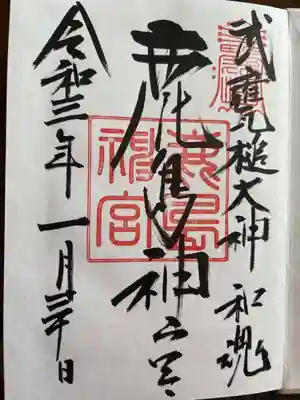 武甕槌大神 和魂
鹿島神宮
鹿島
神宮
令和三年一月三十日